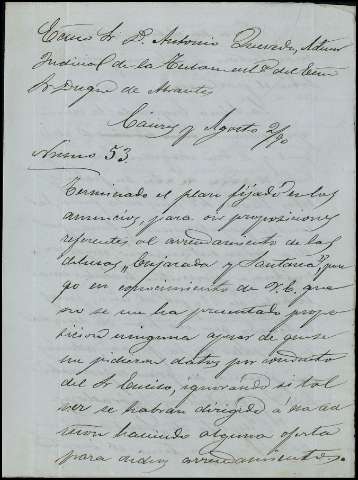 Excmo Sr D. Antonio Quevedo, Admor
Judicial de la Testamentª del Excmo
Sr Duque de Abrantes
Cáceres y Agosto 2/90
Numo 53
Terminado el plazo fijado en los
anuncios, para oir proposiciones
referentes al arrendamiento de las
dehesas, y Santana", pon
go en conocimiento de V.E. que
no se me ha presentado propo
sicion ninguna apesar de que se
me pidieron datos por conducto
del Sr Enciso, ignorando si tal
vez se habrán dirigido á esa ad
haciendo alguna oferta
para dichos arrendamientos.